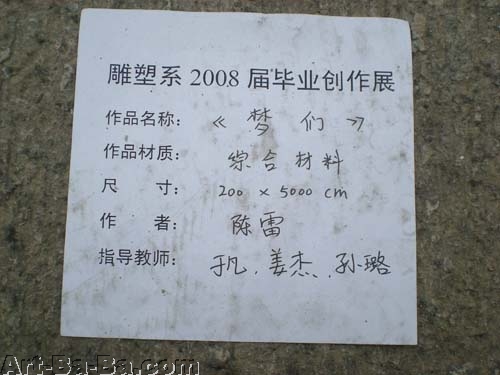 雕塑系 2008 届毕业创作展
作品名称：《梦 们》
作品材质：综合材料
尺 寸：200 x 5000 cm
作 者：陈雷
指导教师：于凡、姜杰、孙璐
Art-Ba-Ba.com